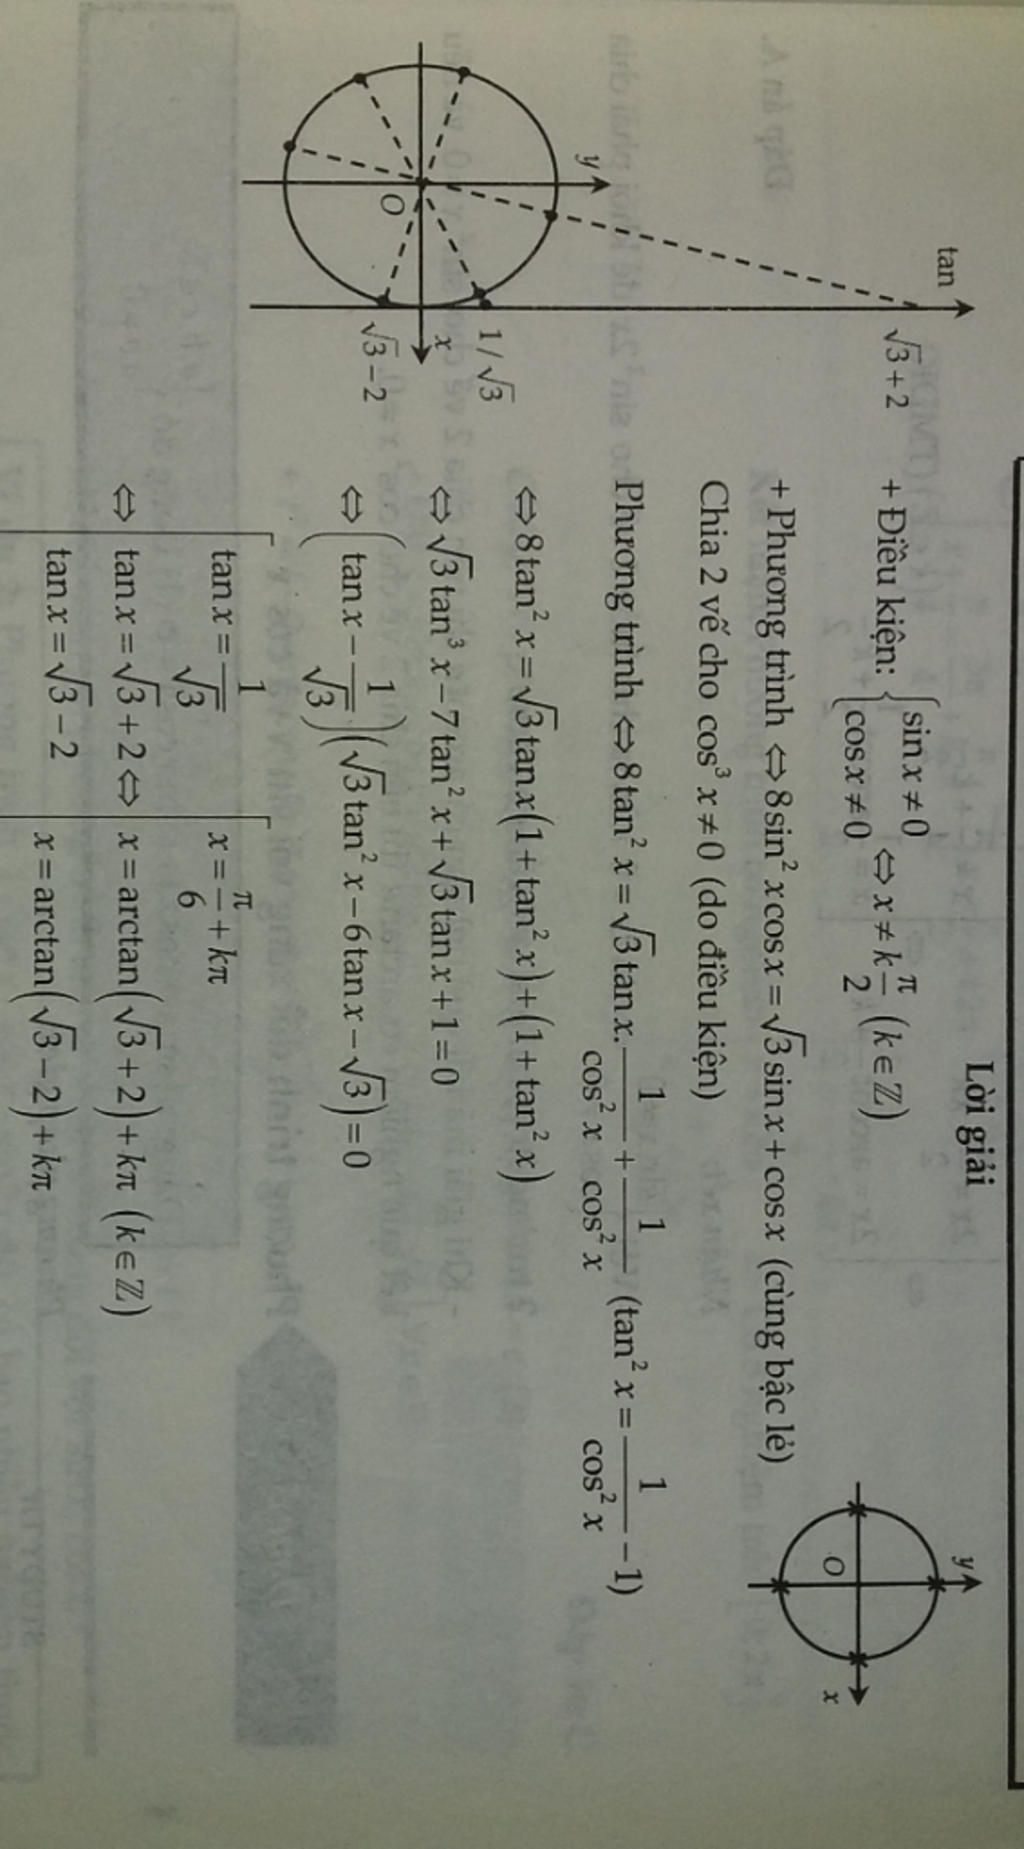 Lời giải
+ Điều kiện: { sin x ≠ 0
cos x ≠ 0 ⇔ x ≠ k π/2 (k ∈ ℤ)
+ Phương trình ⇔ 8sin² x cos x = √3 sin x + cos x (cùng bậc lẻ)
Chia 2 vế cho cos³ x ≠ 0 (do điều kiện)
Phương trình ⇔ 8 tan² x = √3 tan x. 1/cos² x + 1/cos² x (tan² x = 1/cos² x − 1)
⇔ 8 tan² x = √3 tan x(1 + tan² x) + (1 + tan² x)
⇔ √3 tan³ x − 7 tan² x + √3 tan x + 1 = 0
⇔ (tan x − 1/√3)(√3 tan² x − 6 tan x − √3) = 0
tan x = 1/√3 x = π/6 + kπ
⇔ tan x = √3 + 2 ⇔ x = arctan(√3 + 2) + kπ (k ∈ ℤ)
tan x = √3 − 2 x = arctan(√3 − 2) + kπ
y
O
x
tan
√3 + 2
y
1/√3
O
x
√3 − 2